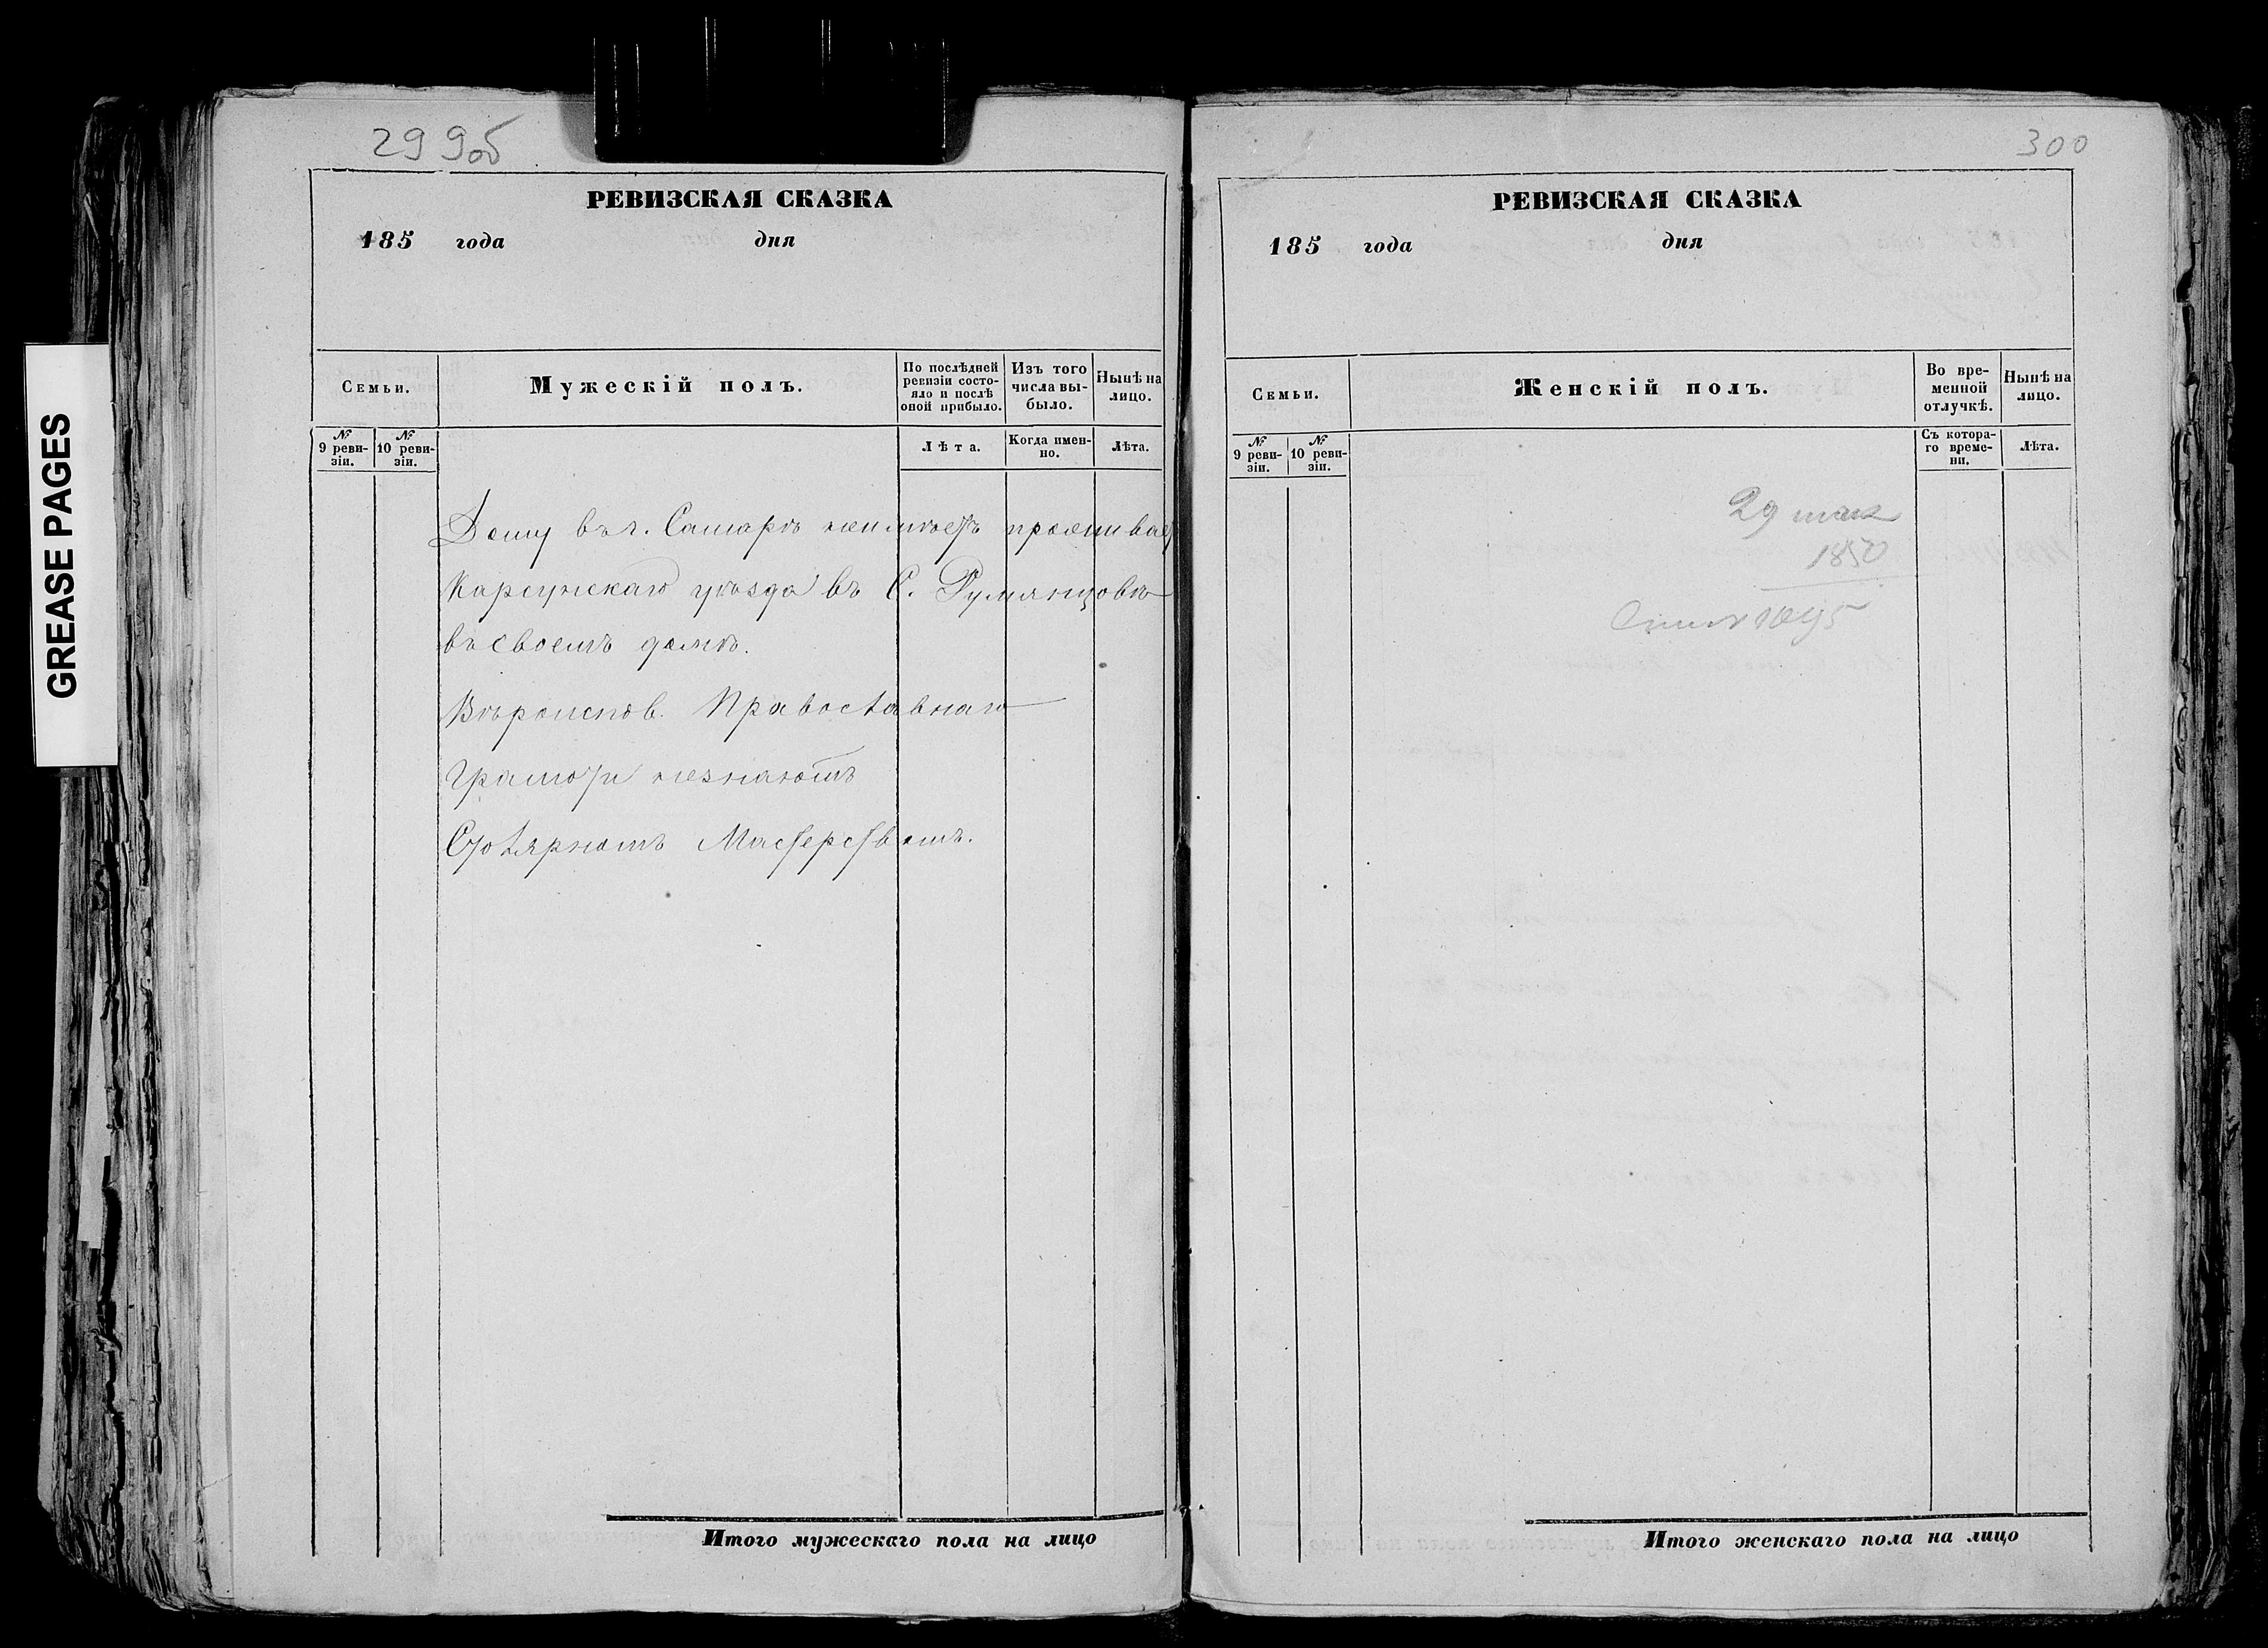 GREASE PAGES
299об
РЕВИЗСКАЯ СКАЗКА
185 года дня
Семьи.
Мужескій полъ.
По послѣдней ревизіи состояло и послѣ оной прибыло.
Изъ того числа выбыло.
Нынѣ на лицо.
№ 9 ревизіи.
№ 10 ревизіи.
Лѣта.
Когда именно.
Лѣта.
Дому въ г. Самарѣ неимѣетъ проживает
Карсунскаго уѣзда въ С. Румянцовѣ
въ своемъ домѣ.
Вѣроиспов. Православнаго
Грамоти незнаютъ
Столярномъ Мастерствомъ.
Итого мужескаго пола на лицо
300
РЕВИЗСКАЯ СКАЗКА
185 года дня
Семьи.
Женскій полъ.
Во временной отлучкѣ.
Нынѣ на лицо.
№ 9 ревизіи.
№ 10 ревизіи.
Съ котораго времени.
Лѣта.
29 мая
1850
1895
Итого женскаго пола на лицо